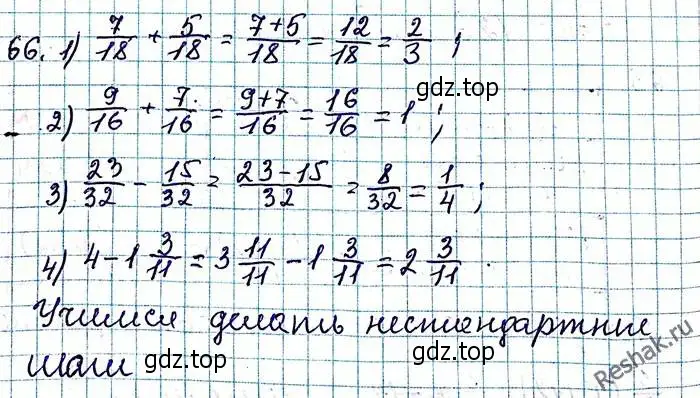 66. 1) 7/18 + 5/18 = 7+5/18 = 12/18 = 2/3 ;
2) 9/16 + 7/16 = 9+7/16 = 16/16 = 1 ;
3) 23/32 - 15/32 = 23-15/32 = 8/32 = 1/4 ;
4) 4 - 1 3/11 = 3 11/11 - 1 3/11 = 2 3/11 .
Учимся делать нестандартные
шаги
гдз.top
гдз.top
гдз.top
Reshak.ru